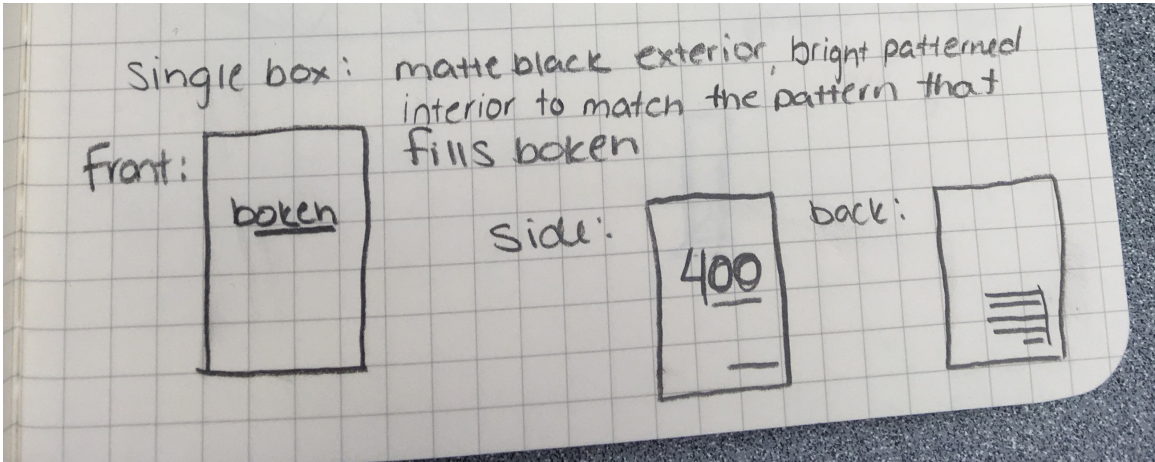 Single box: matte black exterior, bright patterned
interior to match the pattern that
fills boken
Front:
boken
Side:
400
back: